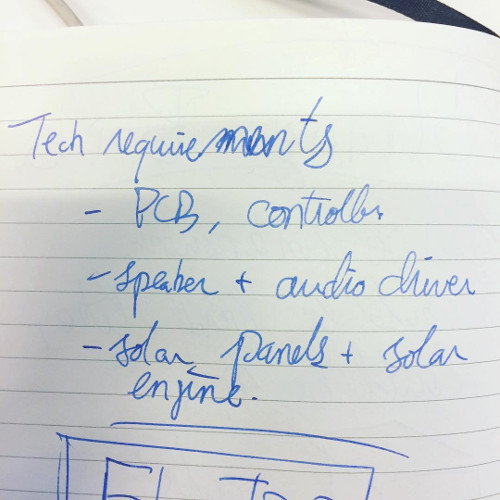 Tech requirements
- PCB, controller
- speaker + audio driver
- solar panels + solar
engine.